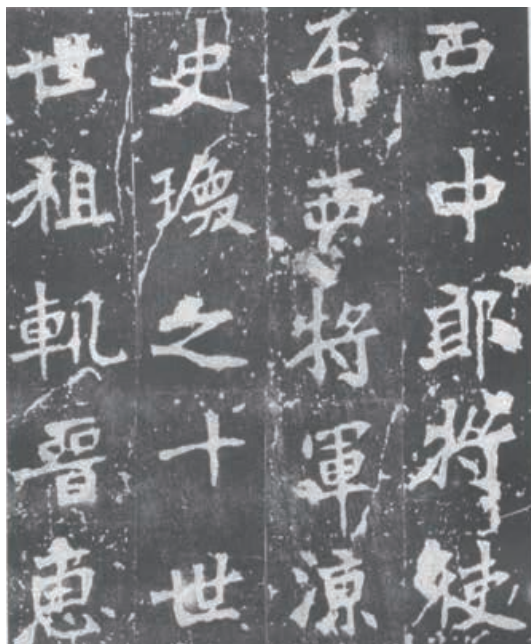 西中郎將使
平西將軍涼
史瑍之十世
世祖軌晉惠